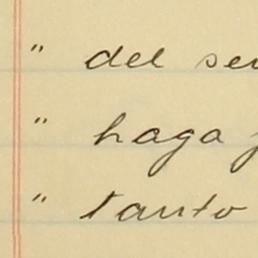 " del
" haga
" tanto